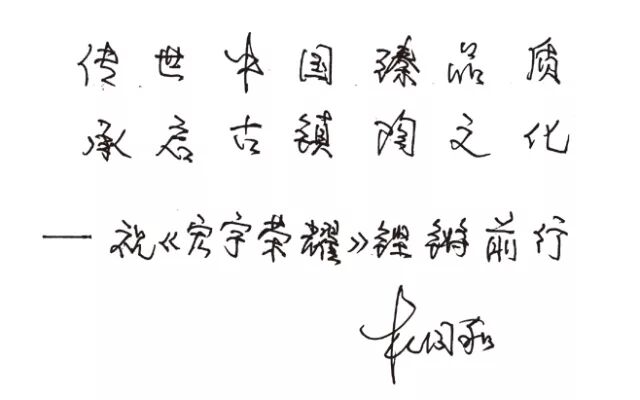 传世中国臻品质
承启古镇陶文化
—祝《宏宇荣耀》铿锵前行